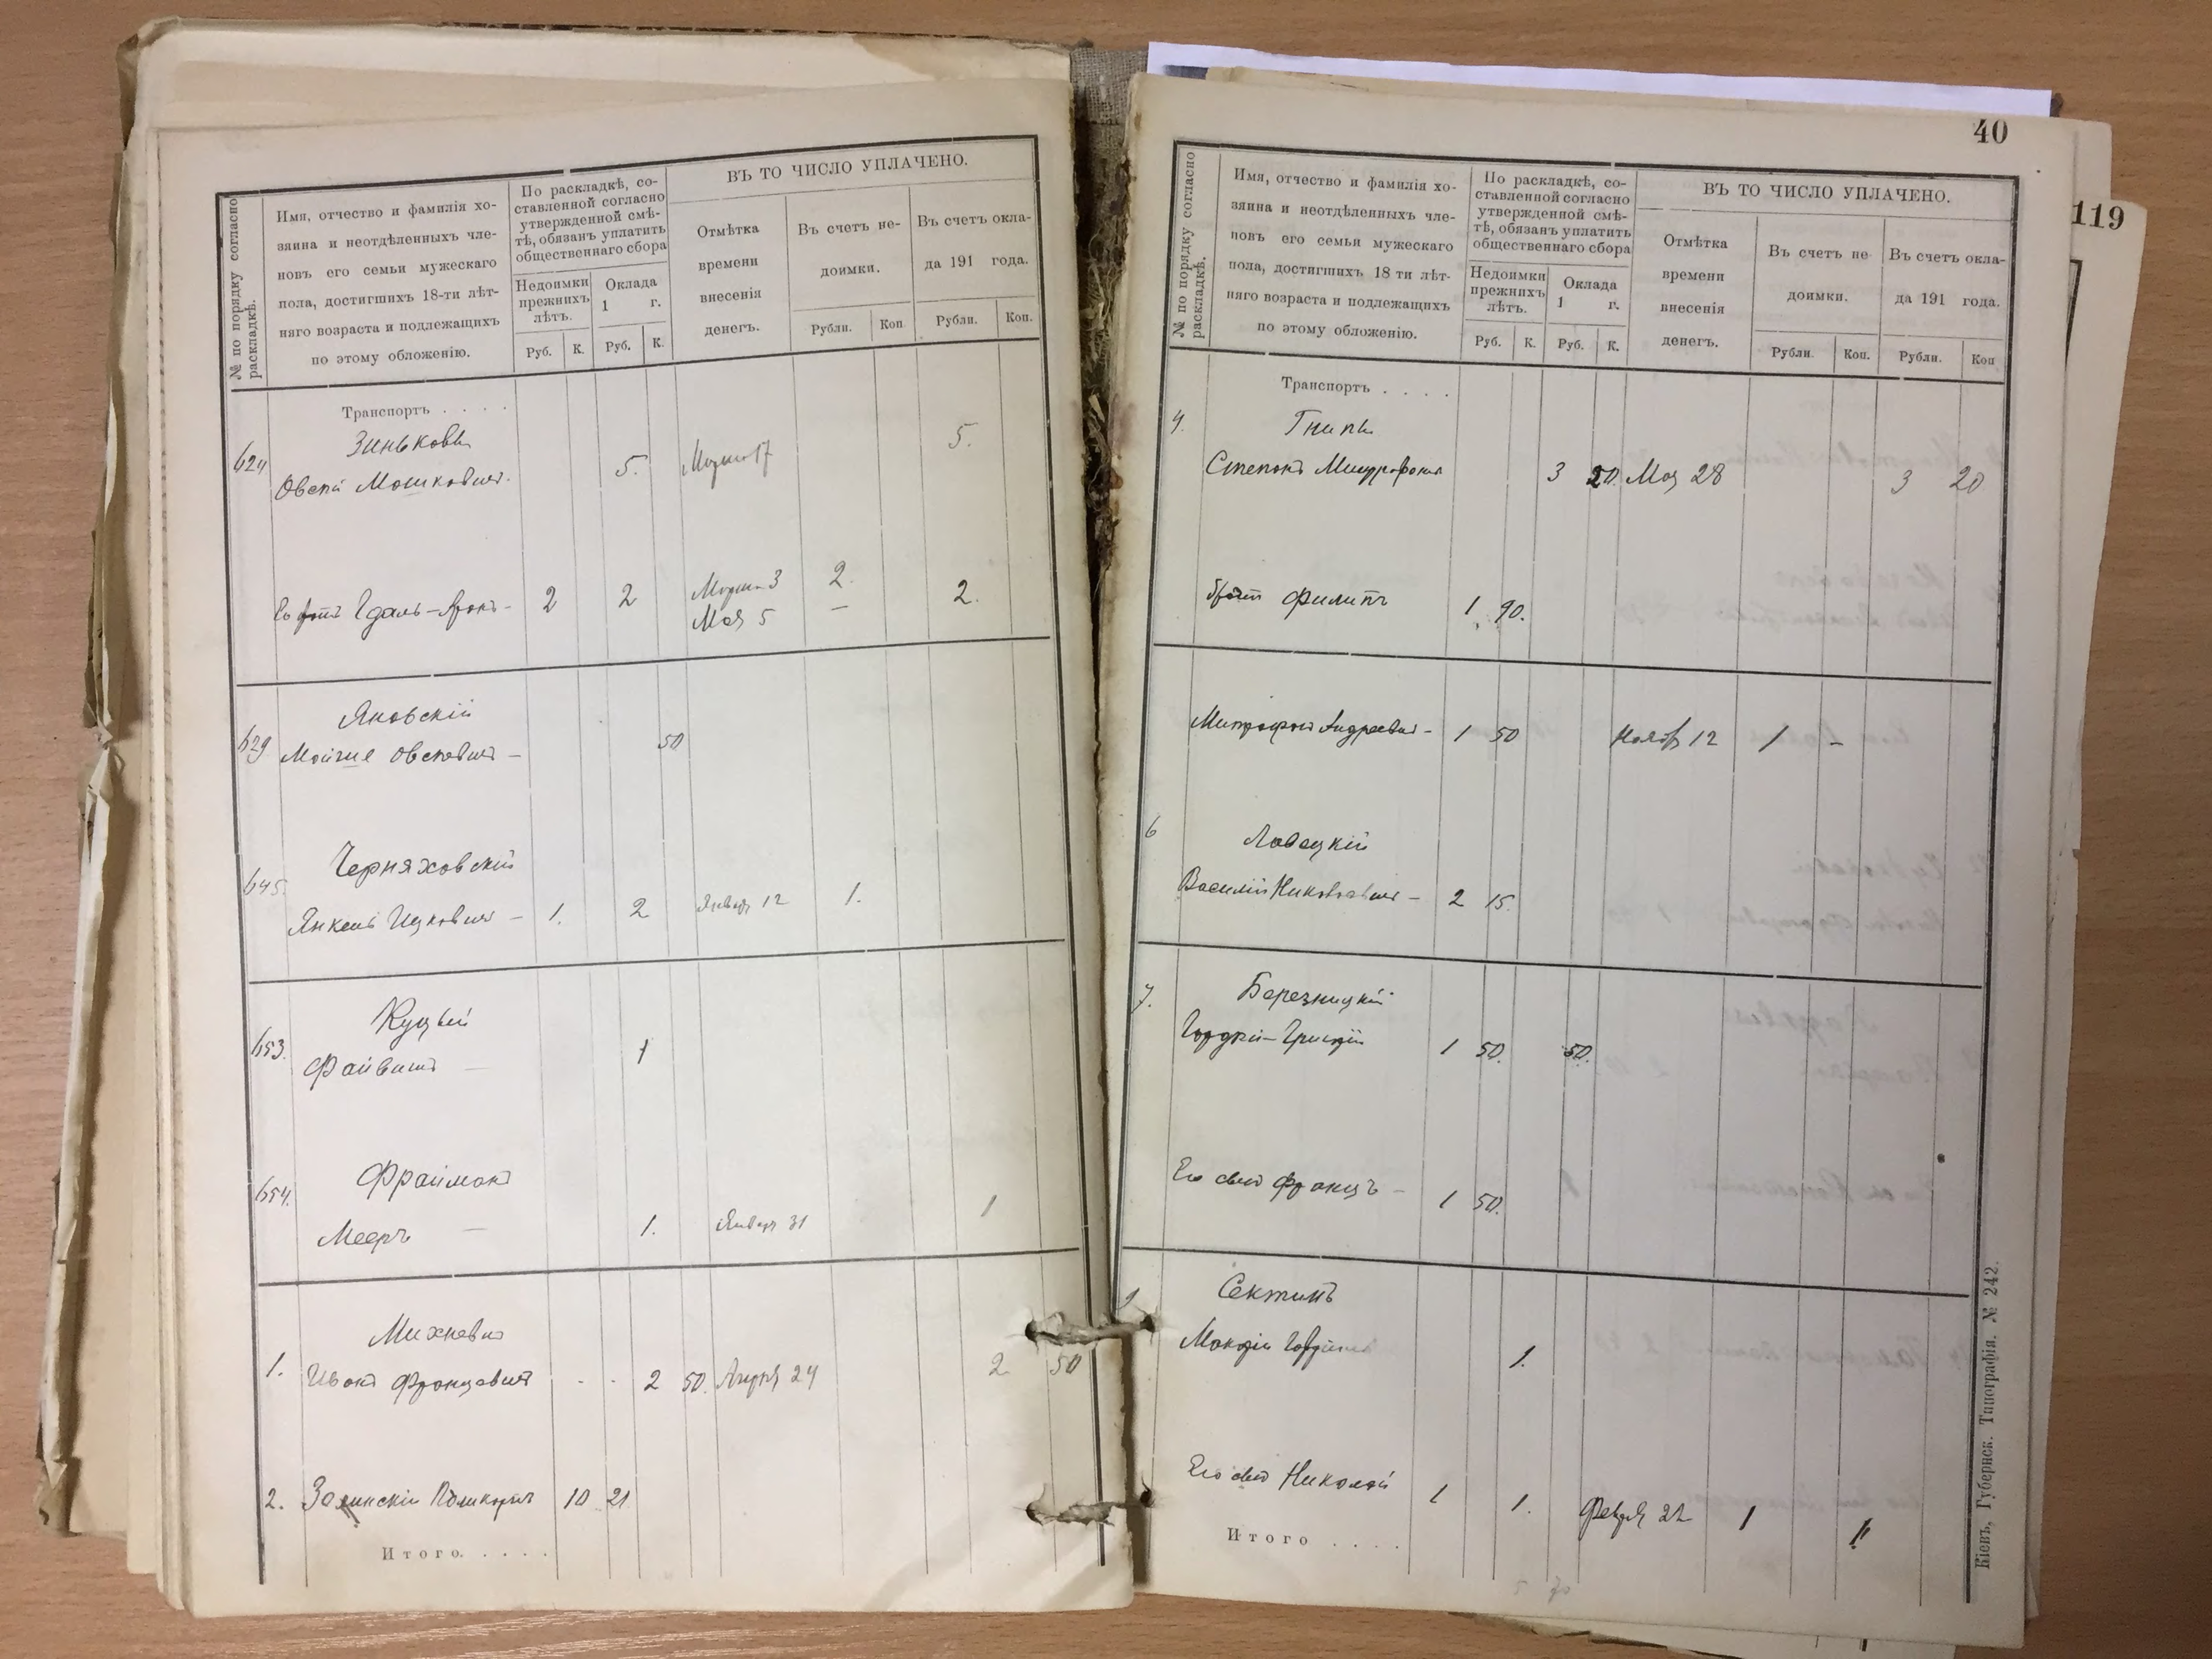 № по порядку согласно
раскладкѣ.
Имя, отчество и фамилія хо-
зяина и неотдѣленныхъ чле-
новъ его семьи мужескаго
пола, достигшихъ 18-ти лѣт-
няго возраста и подлежащихъ
по этому обложенію.
По раскладкѣ, со-
ставленной согласно
утвержденной смѣ-
тѣ, обязанъ уплатить
общественнаго сбора
Недоимки
прежнихъ
лѣтъ.
Оклада
1 г.
Руб. К. Руб. К.
ВЪ ТО ЧИСЛО УПЛАЧЕНО.
Отмѣтка
времени
внесенія
денегъ.
Въ счетъ не-
доимки.
Въ счетъ окла-
да 191 года.
Рубли. Коп Рубли. Коп.
Транспортъ . . . .
Зиньковъ
624 5. 17 5.
2 2 3 2
Мая 5 – 2.
Яновскій
629 50
Черняховскій
645. Янкель Ицковичъ – 1. 2 Январь 12 1.
Куцый
653. Файвишъ – 1
Фраймонъ
654. Мееръ – 1. Январь 31 1
Михневич
1. Иванъ Францевичъ - - 2 50. Апрѣля 24 2 50
2. 10 21
Итого. . . . .
40
№ по порядку согласно
раскладкѣ.
Имя, отчество и фамилія хо-
зяина и неотдѣленныхъ чле-
новъ его семьи мужескаго
пола, достигшихъ 18 ти лѣт-
няго возраста и подлежащихъ
по этому обложенію.
По раскладкѣ, со-
ставленной согласно
утвержденной смѣ-
тѣ, обязанъ уплатить
общественнаго сбора
Недоимки
прежнихъ
лѣтъ.
Оклада
1 г.
Руб. К. Руб. К.
ВЪ ТО ЧИСЛО УПЛАЧЕНО.
Отмѣтка
времени
внесенія
денегъ.
Въ счетъ не
доимки.
Въ счетъ окла-
да 191 года.
Рубли. Коп. Рубли. Коп
Транспортъ . . . .
4. Гнипъ
3 20. Мая 28 3 20
братъ Филипъ 1 90.
Митрофанъ Андреевичъ – 1 50 Ноябр 12 1 –
6
Василій Николаевичъ – 2 15.
7. Березницкій
1 50. 50.
Его сынъ Францъ – 1 50.
Сектинъ
1.
Его сынъ Николай 1 1. Февраля 22 1 1.
Итого . . . .
Кіевъ, Губернск. Типографія. № 242.
119